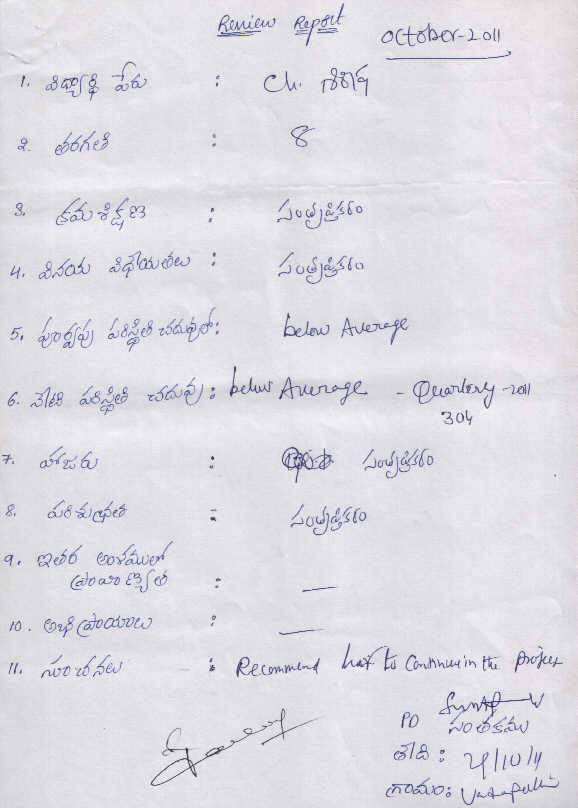 Review Report
October-2011
1. విద్యార్థి పేరు : Ch. శిరీష
2. తరగతి : 8
3. క్రమశిక్షణ : సంతృప్తికరం
4. వినయ విధేయతలు : సంతృప్తికరం
5. పూర్వపు పరిస్థితి చదువులో : below Average
6. నేటి పరిస్థితి చదువు : below Average - Quarterly -2011
304
7. హాజరు : సంతృప్తికరం
8. పరిశుభ్రత : సంతృప్తికరం
9. ఇతర అంశములో
ప్రావీణ్యత : —
10. అభిప్రాయాలు : —
11. సూచనలు : Recommend her to Continue in the project
PD సంతకము
తేది : 4/10/11
గ్రామం :